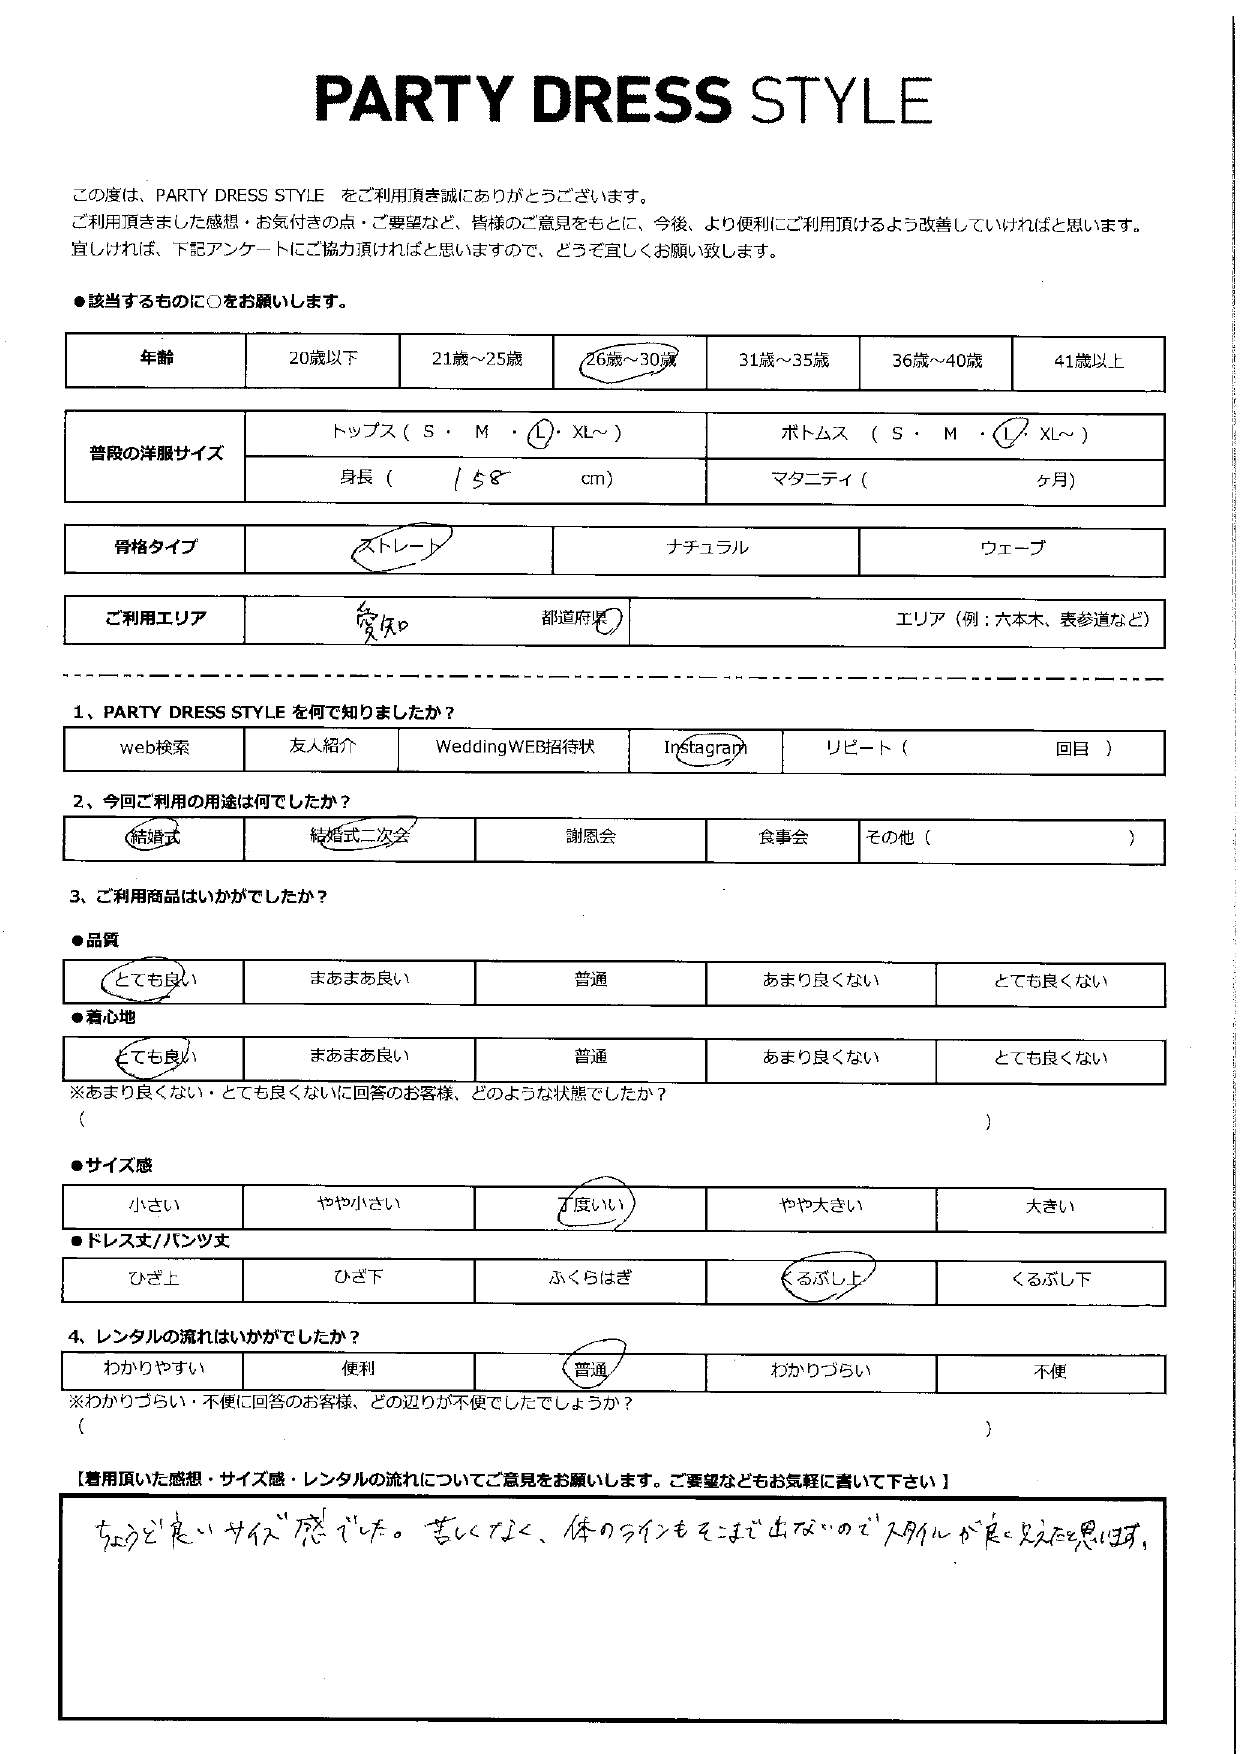 PARTY DRESS STYLE
この度は、PARTY DRESS STYLE　をご利用頂き誠にありがとうございます。
ご利用頂きました感想・お気付きの点・ご要望など、皆様のご意見をもとに、今後、より便利にご利用頂けるよう改善していければと思います。
宜しければ、下記アンケートにご協力頂ければと思いますので、どうぞ宜しくお願い致します。
●該当するものに○をお願いします。
年齢 20歳以下 21歳～25歳 26歳～30歳 31歳～35歳 36歳～40歳 41歳以上
普段の洋服サイズ トップス ( S ・ M ・ L ・ XL～ ) ボトムス ( S ・ M ・ L ・ XL～ )
身長 ( 158 cm) マタニティ ( ヶ月)
骨格タイプ ストレート ナチュラル ウェーブ
ご利用エリア 愛知 都道府県 エリア（例：六本木、表参道など）
1、PARTY DRESS STYLE を何で知りましたか？
web検索 友人紹介 WeddingWEB招待状 Instagram リピート ( 回目 )
2、今回ご利用の用途は何でしたか？
結婚式 結婚式二次会 謝恩会 食事会 その他 ( )
3、ご利用商品はいかがでしたか？
●品質
とても良い まあまあ良い 普通 あまり良くない とても良くない
●着心地
とても良い まあまあ良い 普通 あまり良くない とても良くない
※あまり良くない・とても良くないに回答のお客様、どのような状態でしたか？
( )
●サイズ感
小さい やや小さい 丁度いい やや大きい 大きい
●ドレス丈/パンツ丈
ひざ上 ひざ下 ふくらはぎ くるぶし上 くるぶし下
4、レンタルの流れはいかがでしたか？
わかりやすい 便利 普通 わかりづらい 不便
※わかりづらい・不便に回答のお客様、どの辺りが不便でしたでしょうか？
( )
【着用頂いた感想・サイズ感・レンタルの流れについてご意見をお願いします。ご要望などもお気軽に書いて下さい 】
ちょうど良いサイズ感でした。苦しくなく、体のラインもそこまで出ないのでスタイルが良く見えたと思います。